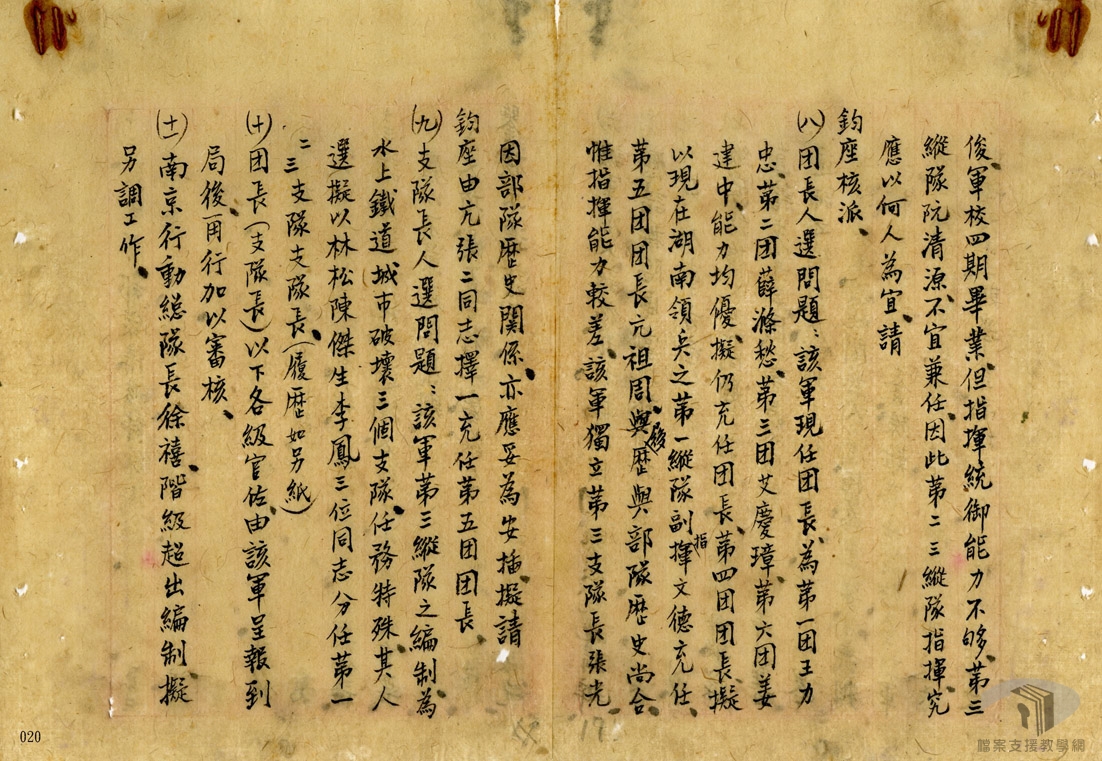 俊、軍校四期畢業、但指揮統御能力不够、第三
縱隊阮清源、不宜兼任、因此第二三縱隊指揮究
應以何人為宜、請
鈞座核派、
(八)团長人選問題：該軍現任团長、為第一团王力
忠、第二团薛滌愁、第三团艾慶璋、第六团姜
建中、能力均優、擬仍充任团長、第四团团長、擬
以現在湖南領兵之第一縱隊副指揮文德充任、
第五团团長亢祖周、與歷與部隊歷史尚合
後
惟指揮能力較差、該軍獨立第三支隊長張光
因部隊歷史關係、亦應妥為安插、擬請
鈞座由亢張二同志擇一充任第五团团長、
(九)支隊長人選問題：該軍第三縱隊之編制為
水上鐵道城市破壞三個支隊、任務特殊、其人
選擬以林松陳傑生李鳳三位同志分任第一
二三支隊支隊長、(履歷如另紙)
(十)团長(支隊長)以下各級官佐、由該軍呈報到
局後再行加以審核、
(十一)南京行動總隊長徐禧、階級超出編制、擬
另調工作、
020
檔案支援教學網